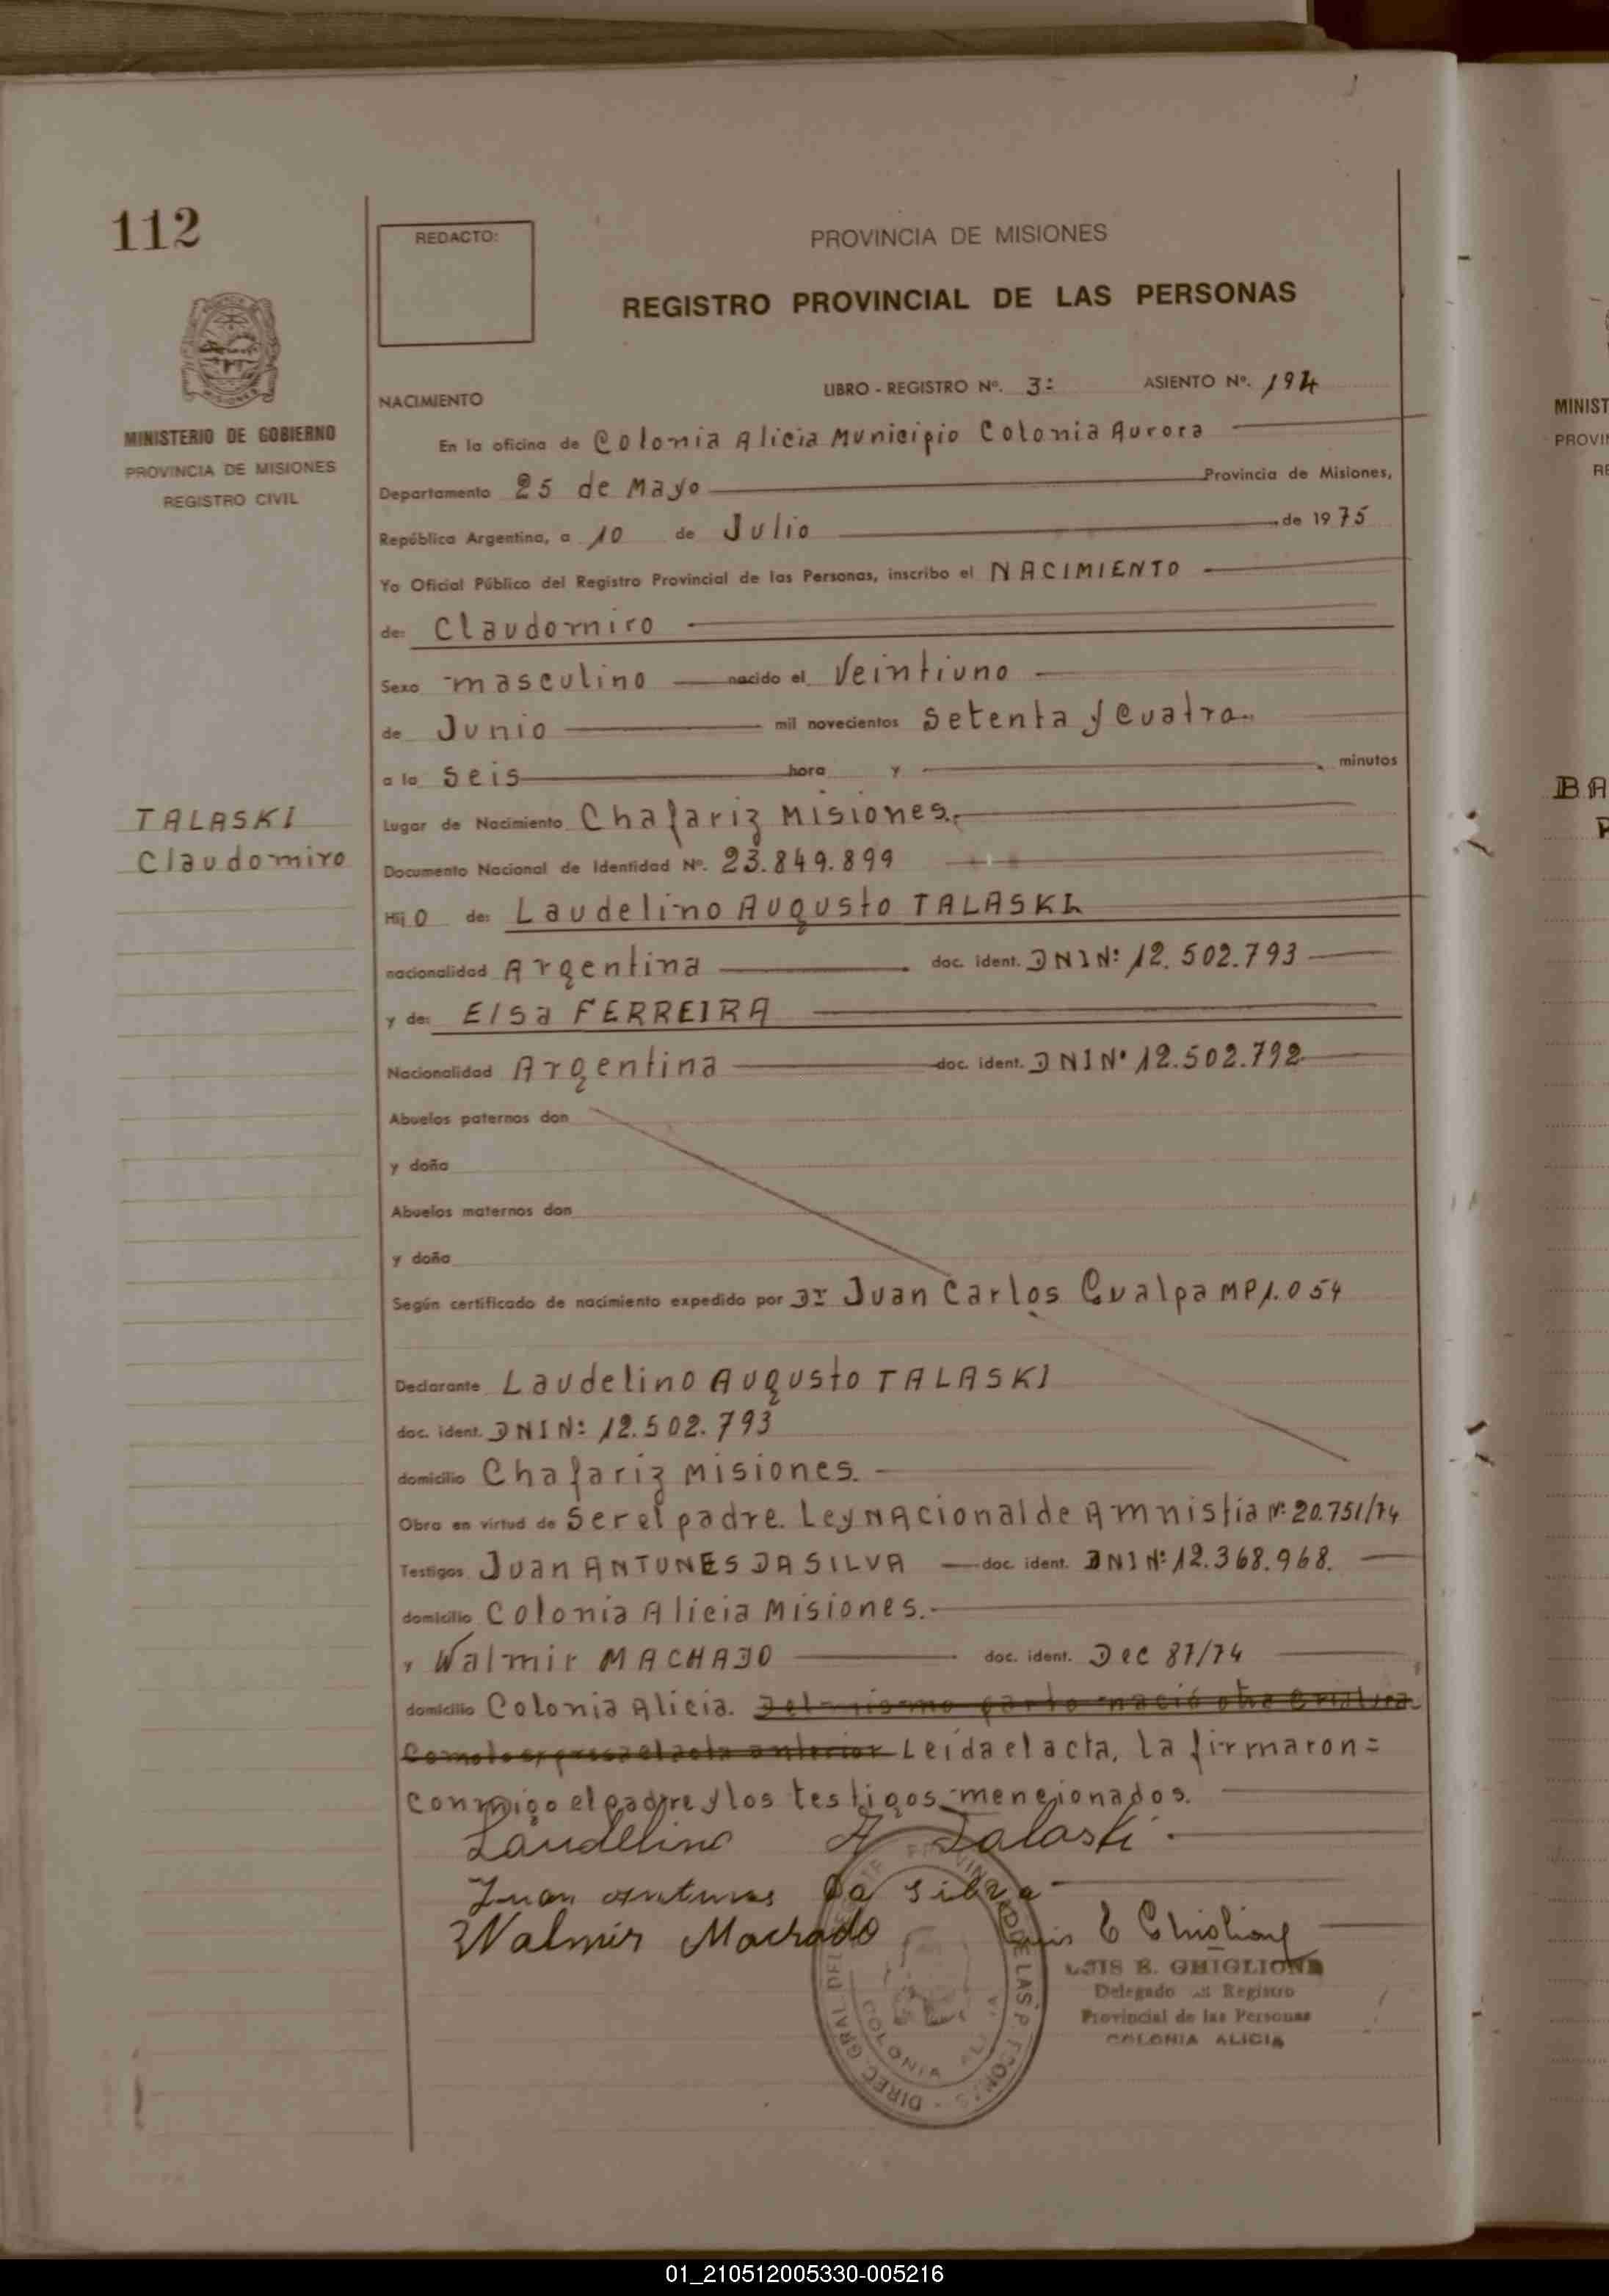 112
REDACTO:
PROVINCIA DE MISIONES
REGISTRO PROVINCIAL DE LAS PERSONAS
MINISTERIO DE GOBIERNO
PROVINCIA DE MISIONES
REGISTRO CIVIL
NACIMIENTO
LIBRO - REGISTRO Nº. 3= ASIENTO Nº. 194
En la oficina de Colonia Alicia Municipio Colonia Aurora
Departamento 25 de Mayo Provincia de Misiones,
República Argentina, a 10 de Julio de 1975
Yo Oficial Público del Registro Provincial de las Personas, inscribo el NACIMIENTO
de: Claudomiro
Sexo masculino nacido el Veintiuno
de Junio mil novecientos setenta y cuatro.
a la seis hora y minutos
TALASKI
Claudomiro
Lugar de Nacimiento Chafariz Misiones.
Documento Nacional de Identidad Nº. 23.849.899
Hijo de: Laudelino Augusto TALASKI
nacionalidad Argentina doc. ident. DNI Nº 12.502.793
y de: Elsa FERREIRA
Nacionalidad Argentina doc. ident. DNI Nº 12.502.792
Abuelos paternos don
y doña
Abuelos maternos don
y doña
Según certificado de nacimiento expedido por Dr Juan Carlos Gualpa MP1.054
Declarante Laudelino Augusto TALASKI
doc. ident. DNI Nº 12.502.793
domicilio Chafariz Misiones.
Obra en virtud de ser el padre. Ley Nacional de Amnistia Nº 20.751/74
Testigos Juan ANTUNES DA SILVA doc. ident. DNI Nº 12.368.968.
domicilio Colonia Alicia Misiones.
y Walmir MACHADO doc. ident. Dec 87/74
domicilio Colonia Alicia. Del mismo parto nació otra criatura
Como lo expresa el acta anterior Leida el acta, la firmaron=
conmigo el padre y los testigos mencionados.
Laudelino A Talaski
Juan antunes Da Silva
Walmir Machado Luis E Ghiglione
LUIS E. GHIGLIONE
Delegado Registro
Provincial de las Personas
COLONIA ALICIA
DIREC. GRAL. DEL PROVINCIAL DE LAS PERSONAS
COLONIA ALICIA
MINIST
PROVIN
RE
BA
01_210512005330-005216